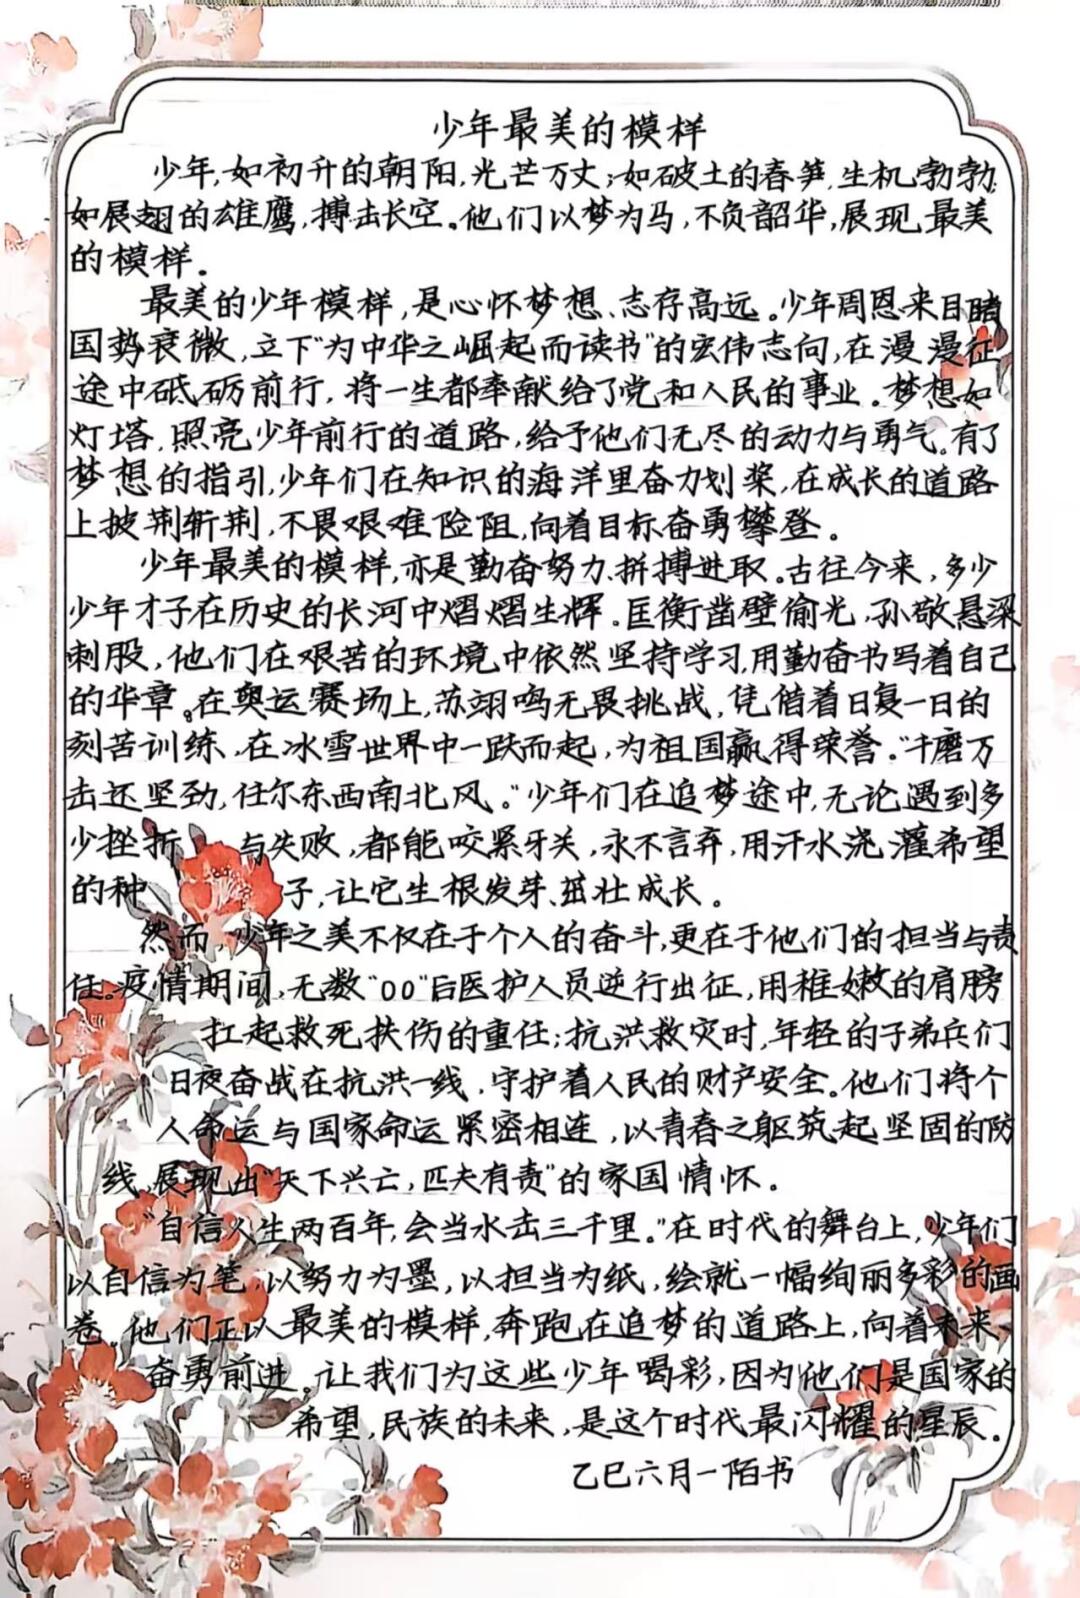 少年最美的模样
少年,如初升的朝阳,光芒万丈;如破土的春笋,生机勃勃;
如展翅的雄鹰,搏击长空。他们以梦为马,不负韶华,展现最美
的模样。
最美的少年模样,是心怀梦想、志存高远。少年周恩来目睹
国势衰微,立下“为中华之崛起而读书”的宏伟志向,在漫漫征
途中砥砺前行,将一生都奉献给了党和人民的事业。梦想如
灯塔,照亮少年前行的道路,给予他们无尽的动力与勇气。有了
梦想的指引,少年们在知识的海洋里奋力划桨,在成长的道路
上披荆斩荆,不畏艰难险阻,向着目标奋勇攀登。
少年最美的模样,亦是勤奋努力、拼搏进取。古往今来,多少
少年才子在历史的长河中熠熠生辉。匡衡凿壁偷光,孙敬悬梁
刺股,他们在艰苦的环境中依然坚持学习,用勤奋书写着自己
的华章。在奥运赛场上,苏翊鸣无畏挑战,凭借着日复一日的
刻苦训练,在冰雪世界中一跃而起,为祖国赢得荣誉。“千磨万
击还坚劲,任尔东西南北风。”少年们在追梦途中,无论遇到多
少挫折与失败,都能咬紧牙关,永不言弃,用汗水浇灌希望
的种子,让它生根发芽、茁壮成长。
然而,少年之美不仅在于个人的奋斗,更在于他们的担当与责
任。疫情期间,无数“00”后医护人员逆行出征,用稚嫩的肩膀
扛起救死扶伤的重任;抗洪救灾时,年轻的子弟兵们
日夜奋战在抗洪一线,守护着人民的财产安全。他们将个
人命运与国家命运紧密相连,以青春之躯筑起坚固的防
线,展现出“天下兴亡,匹夫有责”的家国情怀。
“自信人生两百年,会当水击三千里。”在时代的舞台上,少年们
以自信为笔,以努力为墨,以担当为纸,绘就一幅绚丽多彩的画
卷。他们正以最美的模样,奔跑在追梦的道路上,向着未来,
奋勇前进。让我们为这些少年喝彩,因为他们是国家的
希望,民族的未来,是这个时代最闪耀的星辰。
乙巳六月一陌书